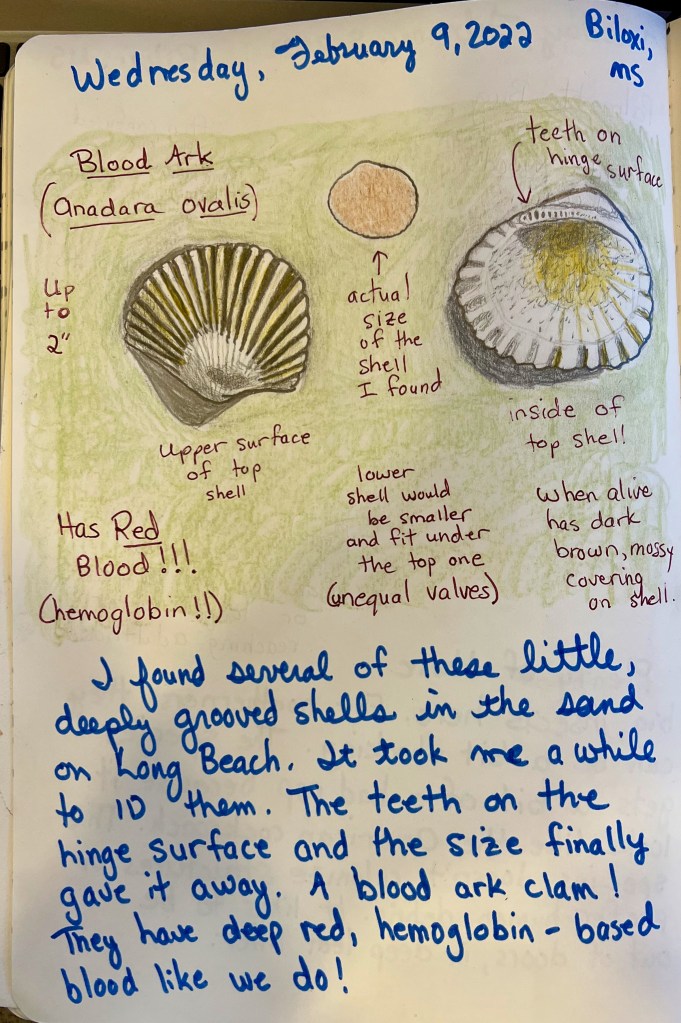 Wednesday, February 9, 2022
Biloxi,
MS
Blood Ark
(anadara ovalis)
up
to
2"
upper surface
of top
shell
↑
actual
size
of the
shell
I found
teeth on
hinge surface
inside of
top shell!
Has Red
Blood!!!
(hemoglobin!!)
lower
shell would
be smaller
and fit under
the top one
(unequal valves)
when alive
has dark
brown, mossy
covering
on shell.
I found several of these little,
deeply grooved shells in the sand
on Long Beach. It took me a while
to ID them. The teeth on the
hinge surface and the size finally
gave it away. A blood ark clam!
They have deep red, hemoglobin-based
blood like we do!